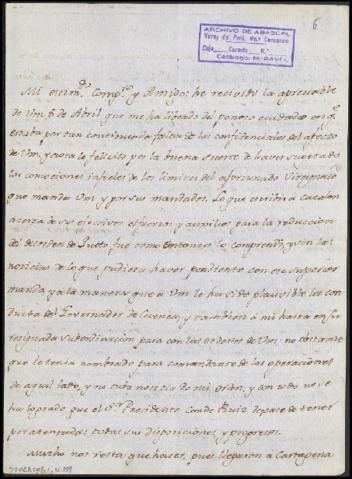 6
ARCHIVO DE ABASCAL
Virrey del Perú, Mqs. Concordia
Caja Carpeta N.º
Catálogo: M. BAYLE
Mi estim.do Comp.ro y Amigo: he recivido la apreciable
de Vm. 8 de Abril que me ha libertado del penoso cuidado en q.e
estaba por su continuacion faltando las confidenciales del afecto
de Vm, y ahora le felicito por la buena suerte de haver superado
las conmociones infieles de los limites del afortunado Virreynato
que manda Vm y por sus mandados. Lo que escribi a
acerca de sus efectivos esfuerzos y auxilios para la reduccion
del de Quito fue como entonces lo comprendi, y sin las
noticias de lo que pudiera haver pendiente con ese superior
mando, y a la manera que a Vm le ha sido plausible la con
ducta del Governador de Cuenca, y tambien a mi hasta en su
resignada subordinacion para con las ordenes de Vm, no obstante
que le tenia nombrado para comandante de las operaciones
de aquel lado, y no tubo noticia de mi orden, y con todo no se
ha logrado que el S.or Presidente Conde Ruiz dejase de tener
por atentadas todas sus disposiciones y progresos.
Mucho nos resta que hacer, pues llegaron a Cartagena
DIVERSOS, 1, N.